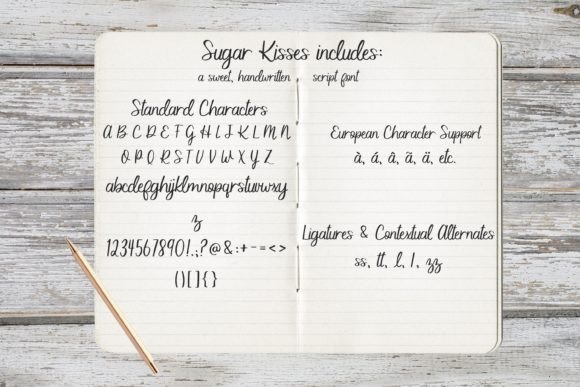 Sugar Kisses includes:
a sweet, handwritten script font
Standard Characters
A B C D E F G H I J K L M N
O P Q R S T U V W X Y Z
abcdefghijklmnopqrstuvwxy
z
1234567890!.;?@&:+-=<>
()[]{}
European Character Support
à, á, â, ã, ä, etc.
Ligatures & Contextual Alternates
ss, tt, l, l, zz